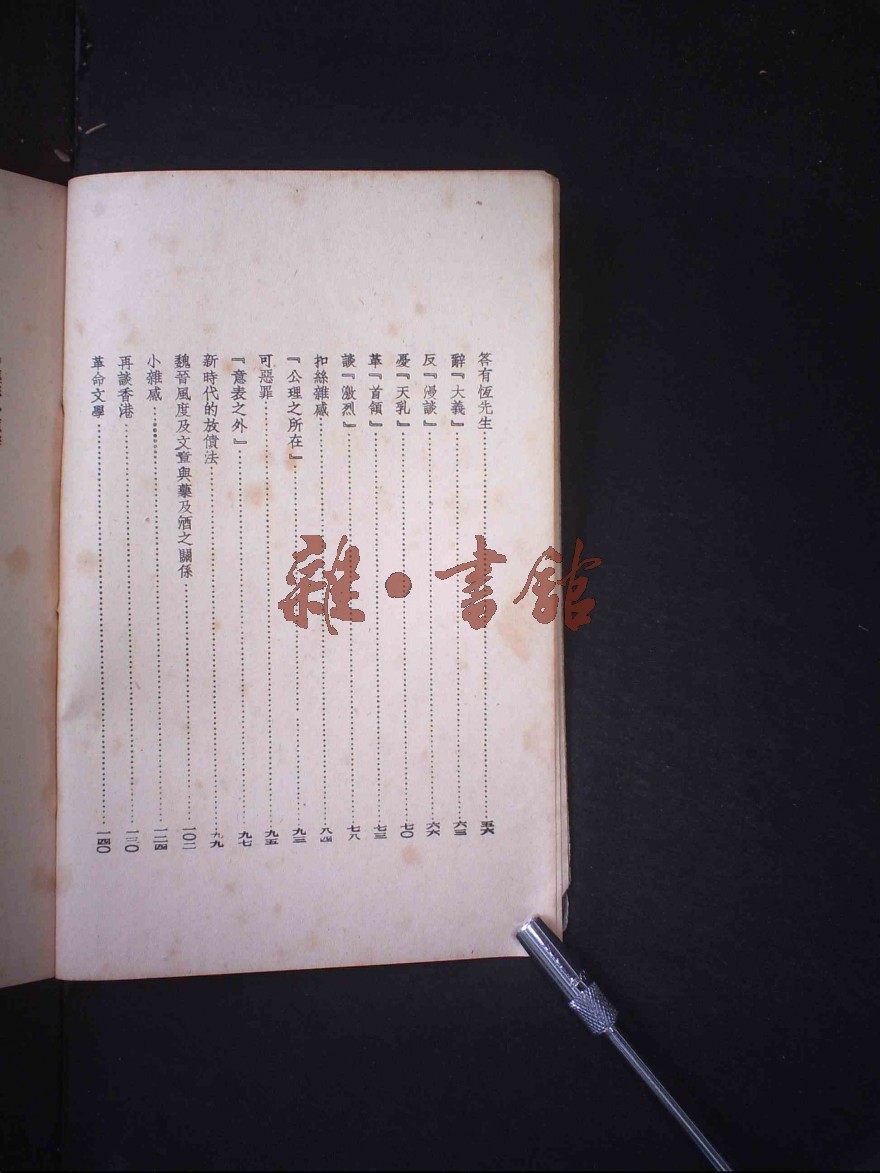 答有恆先生……五六
辭『大義』……六三
反『漫談』……六六
憂『天乳』……七〇
革『首領』……七三
談『激烈』……七八
扣絲雜感……八四
『公理之所在』……九三
可惡罪……九五
『意表之外』……九七
新時代的放債法……九九
魏晉風度及文章與藥及酒之關係……一〇二
小雜感……一二四
再談香港……一三〇
革命文學……一四〇
雜·書館